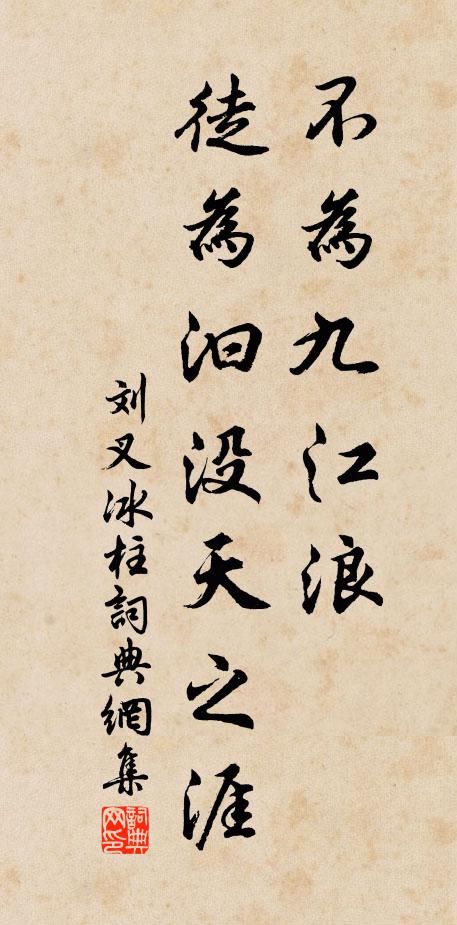 不為九江浪
徒為汩没天之涯
刘叉冰柱詞典網集
詞典
网印